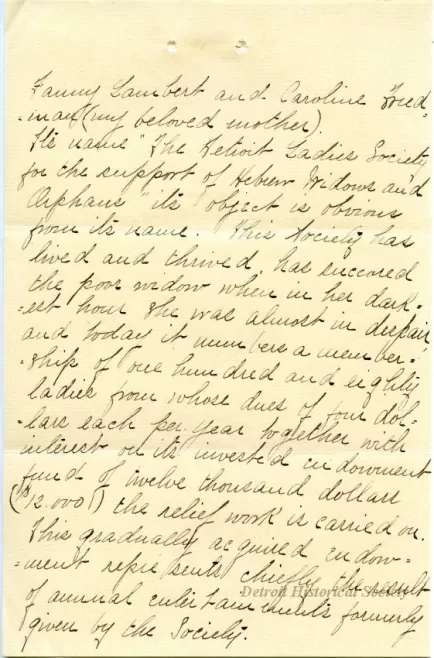 Fanny Lambert and Caroline Fried-
-man (my beloved mother).
Its name "The Detroit Ladies Society
for the support of Hebrew Widows and
Orphans" its object is obvious
from its name. This Society has
lived and thrived, has succored
the poor widow when in her dark-
-est hour she was almost in despair
and today it numbers a member-
-ship of one hundred and eighty
ladies from whose dues of four dol-
-lars each per year together with
interest on its invested endowment
fund of twelve thousand dollars
($12.000) the relief work is carried on.
This gradually acquired endow-
-ment represents chiefly the result
of annual entertainments formerly
given by the Society.
Detroit Historical Society